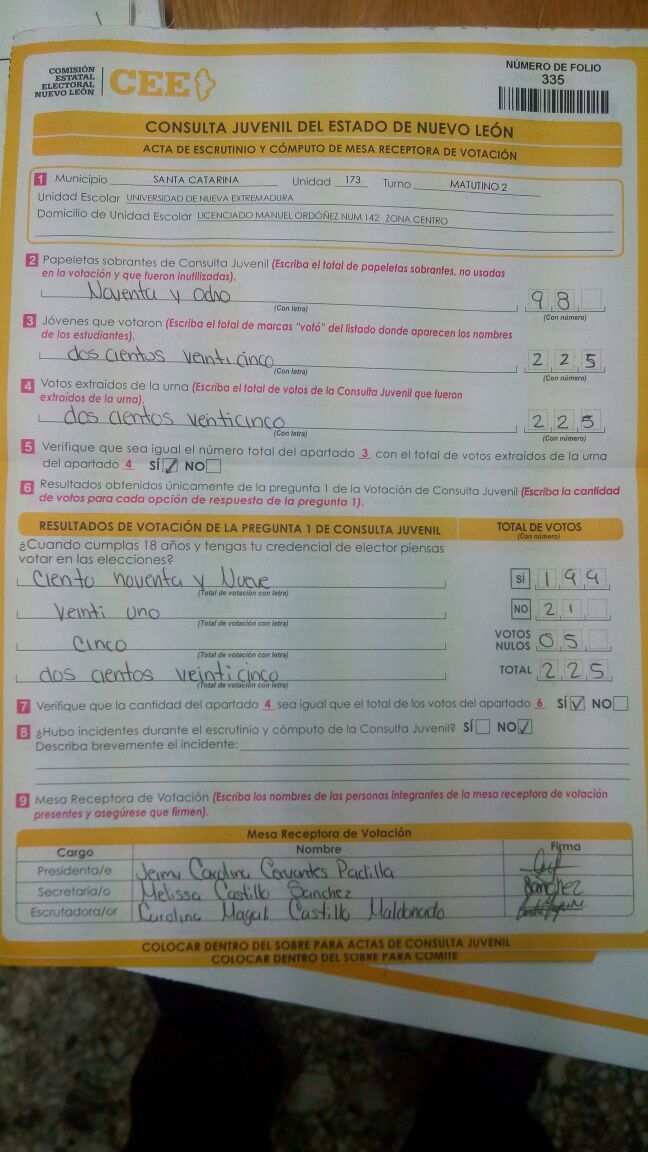 COMISIÓN
ESTATAL
ELECTORAL
NUEVO LEÓN
CEE
NÚMERO DE FOLIO
335
CONSULTA JUVENIL DEL ESTADO DE NUEVO LEÓN
ACTA DE ESCRUTINIO Y CÓMPUTO DE MESA RECEPTORA DE VOTACIÓN
1 Municipio SANTA CATARINA Unidad 173 Turno MATUTINO 2
Unidad Escolar UNIVERSIDAD DE NUEVA EXTREMADURA
Domicilio de Unidad Escolar LICENCIADO MANUEL ORDÓÑEZ NUM.142 ZONA CENTRO
2 Papeletas sobrantes de Consulta Juvenil (Escriba el total de papeletas sobrantes, no usadas
en la votación y que fueron inutilizadas).
Noventa y ocho 98
(Con letra) (Con número)
3 Jóvenes que votaron (Escriba el total de marcas "votó" del listado donde aparecen los nombres
de los estudiantes).
dos cientos veinti cinco 225
(Con letra) (Con número)
4 Votos extraídos de la urna (Escriba el total de votos de la Consulta Juvenil que fueron
extraídos de la urna).
dos cientos venticinco 225
(Con letra) (Con número)
5 Verifique que sea igual el número total del apartado 3 con el total de votos extraídos de la urna
del apartado 4 SÍ ✓ NO
6 Resultados obtenidos únicamente de la pregunta 1 de la Votación de Consulta Juvenil (Escriba la cantidad
de votos para cada opción de respuesta de la pregunta 1).
RESULTADOS DE VOTACIÓN DE LA PREGUNTA 1 DE CONSULTA JUVENIL TOTAL DE VOTOS
(Con número)
¿Cuando cumplas 18 años y tengas tu credencial de elector piensas
votar en las elecciones?
Ciento noventa y Nueve SÍ 199
(Total de votación con letra)
Veinti uno NO 21
(Total de votación con letra)
Cinco VOTOS NULOS 05
(Total de votación con letra)
dos cientos veinticinco TOTAL 225
(Total de votación con letra)
7 Verifique que la cantidad del apartado 4 sea igual que el total de los votos del apartado 6 SÍ ✓ NO
8 ¿Hubo incidentes durante el escrutinio y cómputo de la Consulta Juvenil? SÍ NO ✓
Describa brevemente el incidente:
9 Mesa Receptora de Votación (Escriba los nombres de las personas integrantes de la mesa receptora de votación
presentes y asegúrese que firmen).
Mesa Receptora de Votación
Cargo Nombre Firma
Presidenta/e Carolina Cervantes Padilla
Secretaria/o Melissa Castillo Sanchez Sanchez
Escrutadora/or Carolina Magali Castillo Maldonado
COLOCAR DENTRO DEL SOBRE PARA ACTAS DE CONSULTA JUVENIL
COLOCAR DENTRO DEL SOBRE PARA COMITÉ